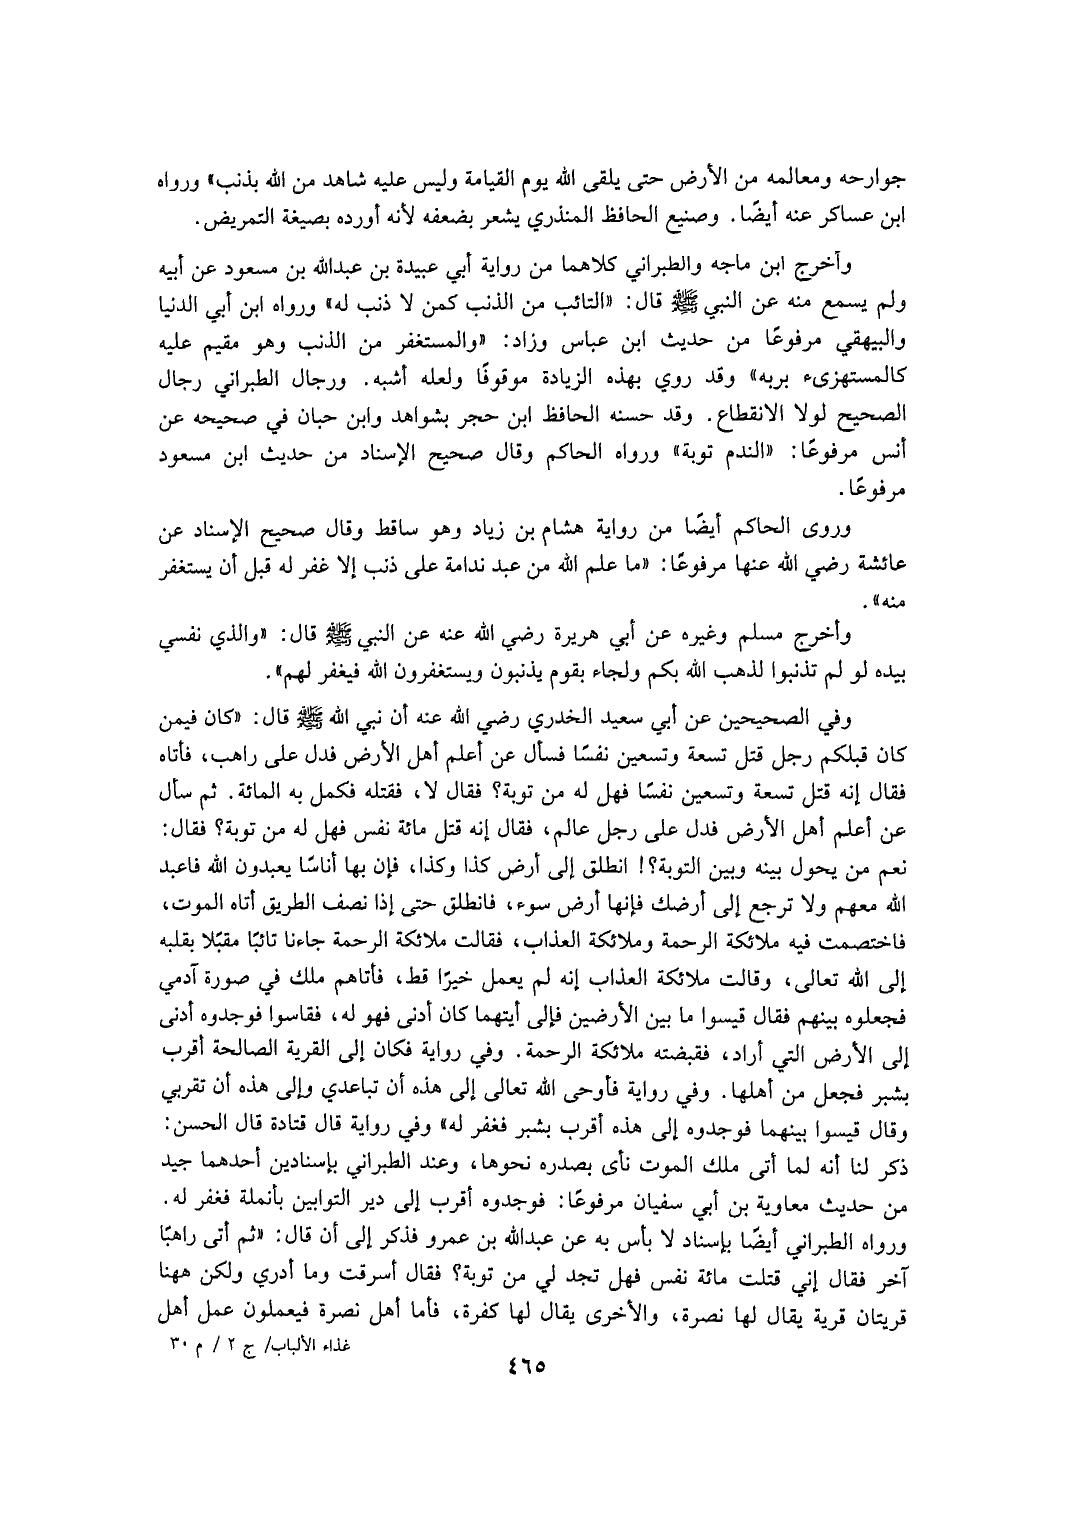 جوارحه ومعالمه من الأرض حتى يلقى الله يوم القيامة وليس عليه شاهد من الله بذنب» ورواه
ابن عساكر عنه أيضًا. وصنيع الحافظ المنذري يشعر بضعفه لأنه أورده بصيغة التمريض.
وآخرج ابن ماجه والطبراني كلاهما من رواية أبي عبيدة بن عبدالله بن مسعود عن أبيه
ولم يسمع منه عن النبي ﷺ قال: «التائب من الذنب كمن لا ذنب له» ورواه ابن أبي الدنيا
والبيهقي مرفوعًا من حديث ابن عباس وزاد: «والمستغفر من الذنب وهو مقيم عليه
كالمستهزىء بربه» وقد روي بهذه الزيادة موقوفًا ولعله أشبه. ورجال الطبراني رجال
الصحيح لولا الانقطاع. وقد حسنه الحافظ ابن حجر بشواهد وابن حبان في صحيحه عن
أنس مرفوعًا: «الندم توبة» ورواه الحاكم وقال صحيح الإسناد من حديث ابن مسعود
مرفوعًا.
وروى الحاكم أيضًا من رواية هشام بن زياد وهو ساقط وقال صحيح الإسناد عن
عائشة رضي الله عنها مرفوعًا: «ما علم الله من عبد ندامة على ذنب إلا غفر له قبل أن يستغفر
منه».
وأخرج مسلم وغيره عن أبي هريرة رضي الله عنه عن النبي ﷺ قال: «والذي نفسي
بيده لو لم تذنبوا لذهب الله بكم ولجاء بقوم يذنبون ويستغفرون الله فيغفر لهم».
وفي الصحيحين عن أبي سعيد الخدري رضي الله عنه أن نبي الله ﷺ قال: «كان فيمن
كان قبلكم رجل قتل تسعة وتسعين نفسًا فسأل عن أعلم أهل الأرض فدل على راهب، فأتاه
فقال إنه قتل تسعة وتسعين نفسًا فهل له من توبة؟ فقال لا، فقتله فكمل به المائة. ثم سأل
عن أعلم أهل الأرض فدل على رجل عالم، فقال إنه قتل مائة نفس فهل له من توبة؟ فقال:
نعم من يحول بينه وبين التوبة؟! انطلق إلى أرض كذا وكذا، فإن بها أناسًا يعبدون الله فاعبد
الله معهم ولا ترجع إلى أرضك فإنها أرض سوء، فانطلق حتى إذا نصف الطريق أتاه الموت،
فاختصمت فيه ملائكة الرحمة وملائكة العذاب، فقالت ملائكة الرحمة جاءنا تائبًا مقبًلا بقلبه
إلى الله تعالى، وقالت ملائكة العذاب إنه لم يعمل خيرًا قط، فأتاهم ملك في صورة آدمي
فجعلوه بينهم فقال قيسوا ما بين الأرضين فإلى أيتهما كان أدنى فهو له، فقاسوا فوجدوه أدنى
إلى الأرض التي أراد، فقبضته ملائكة الرحمة. وفي رواية فكان إلى القرية الصالحة أقرب
بشبر فجعل من أهلها. وفي رواية فأوحى الله تعالى إلى هذه أن تباعدي وإلى هذه أن تقربي
وقال قيسوا بينهما فوجدوه إلى هذه أقرب بشبر فغفر له» وفي رواية قال قتادة قال الحسن:
ذكر لنا أنه لما أتى ملك الموت نأى بصدره نحوها، وعند الطبراني بإسنادين أحدهما جيد
من حديث معاوية بن أبي سفيان مرفوعًا: فوجدوه أقرب إلى دير التوابين بأنملة فغفر له.
ورواه الطبراني أيضًا بإسناد لا بأس به عن عبدالله بن عمرو فذكر إلى أن قال: «ثم أتى راهبًا
آخر فقال إني قتلت مائة نفس فهل تجد لي من توبة؟ فقال أسرقت وما أدري ولكن ههنا
قريتان قرية يقال لها نصرة، والأخرى يقال لها كفرة، فأما أهل نصرة فيعملون عمل أهل
غذاء الألباب/ ج ٢ / م ٣٠
٤٦٥